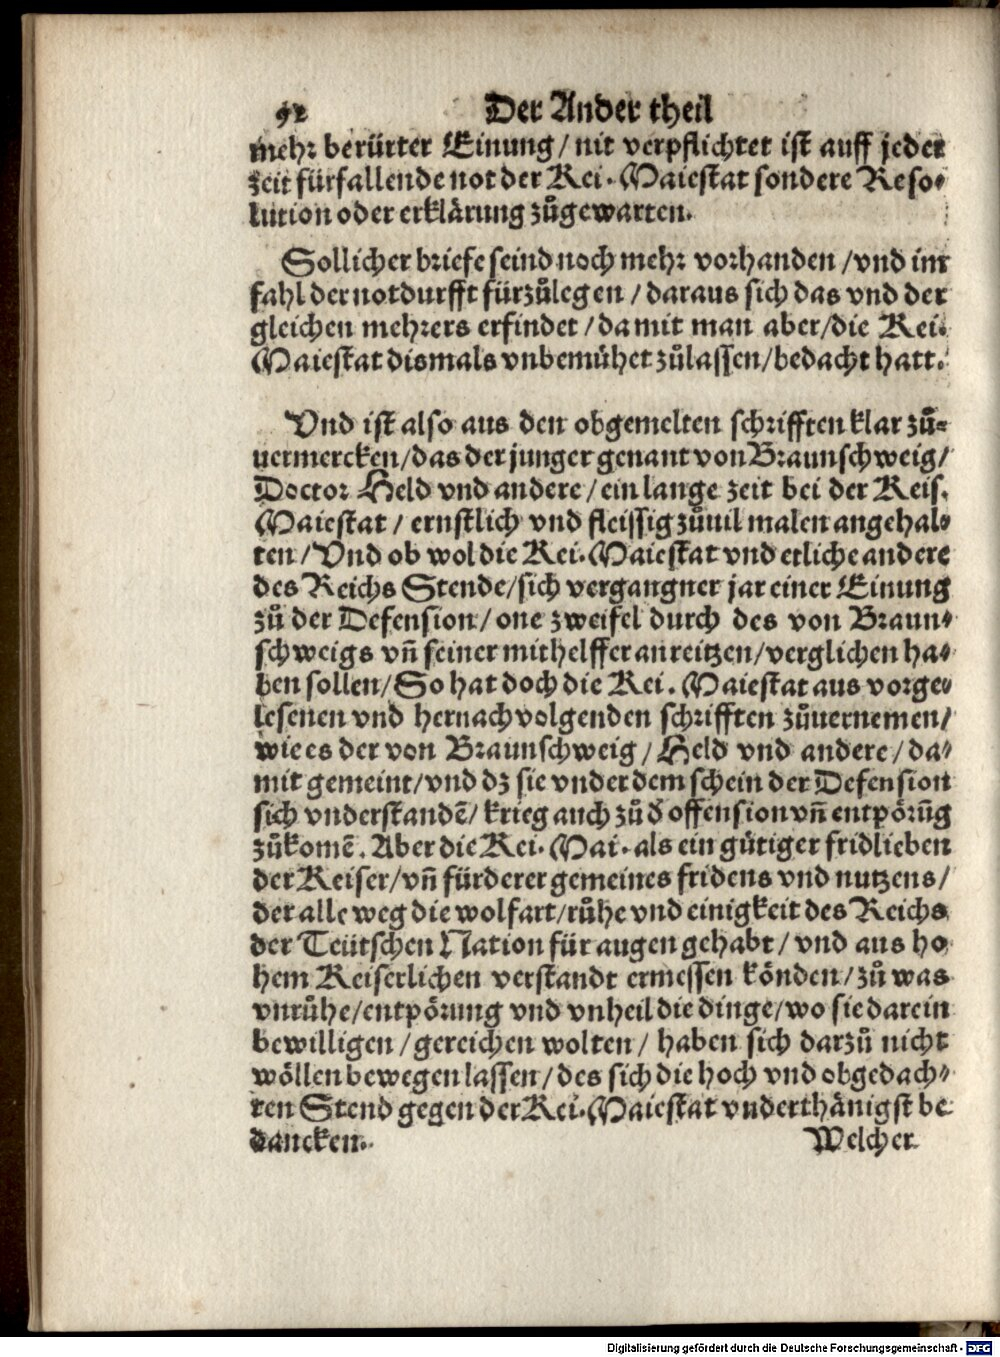 92 Der Ander theil
mehr berürter Einung/ nit verpflichtet ist auff jeder
zeit fürfallende not der Kei. Maiestat sondere Reso⸗
lution oder erklärung zůgewarten.
Sollicher briefe seind noch mehr vorhanden/vnd im
fahl der notdurfft fürzůlegen/ daraus sich das vnd der
gleichen mehrers erfindet/damit man aber/die Kei.
Maiestat dismals vnbemühet zůlassen/bedacht hatt.
Vnd ist also aus den obgemelten schrifften klar zů⸗
uermercken/das der junger genant von Braunschweig/
Doctor Held vnd andere/ein lange zeit bei der Keis.
Maiestat/ ernstlich vnd fleissig zůuil malen angehal⸗
ten/Vnd ob wol die Kei. Maiestat vnd etliche andere
des Reichs Stende/sich vergangner jar einer Einung
zů der Defension/ one zweifel durch des von Braun⸗
schweigs vñ seiner mithelffer anreitzen/verglichen ha⸗
ben sollen/So hat doch die Kei. Maiestat aus vorge⸗
lesenen vnd hernachvolgenden schrifften zůuernemen/
wie es der von Braunschweig/Held vnd andere/da⸗
mit gemeint/vnd dz sie vnder dem schein der Defension
sich vnderstandẽ/ krieg auch zů d' offension vñ entpörũg
zůkomẽ. Aber die Kei. Mai. als ein gütiger fridlieben
der Keiser/vñ fürderer gemeines fridens vnd nutzens/
der alle weg die wolfart/růhe vnd einigkeit des Reichs
der Teütschen Nation für augen gehabt/ vnd aus ho
hem Keiserlichen verstandt ermessen könden/zů was
vnrůhe/entpörung vnd vnheil die dinge/wo sie darein
bewilligen/gereichen wolten/ haben sich darzů nicht
wöllen bewegen lassen/des sich die hoch vnd obgedach⸗
ten Stend gegen der Kei. Maiestat vnderthänigst be
dancken. Welcher
Digitalisierung gefördert durch die Deutsche Forschungsgemeinschaft - DFG